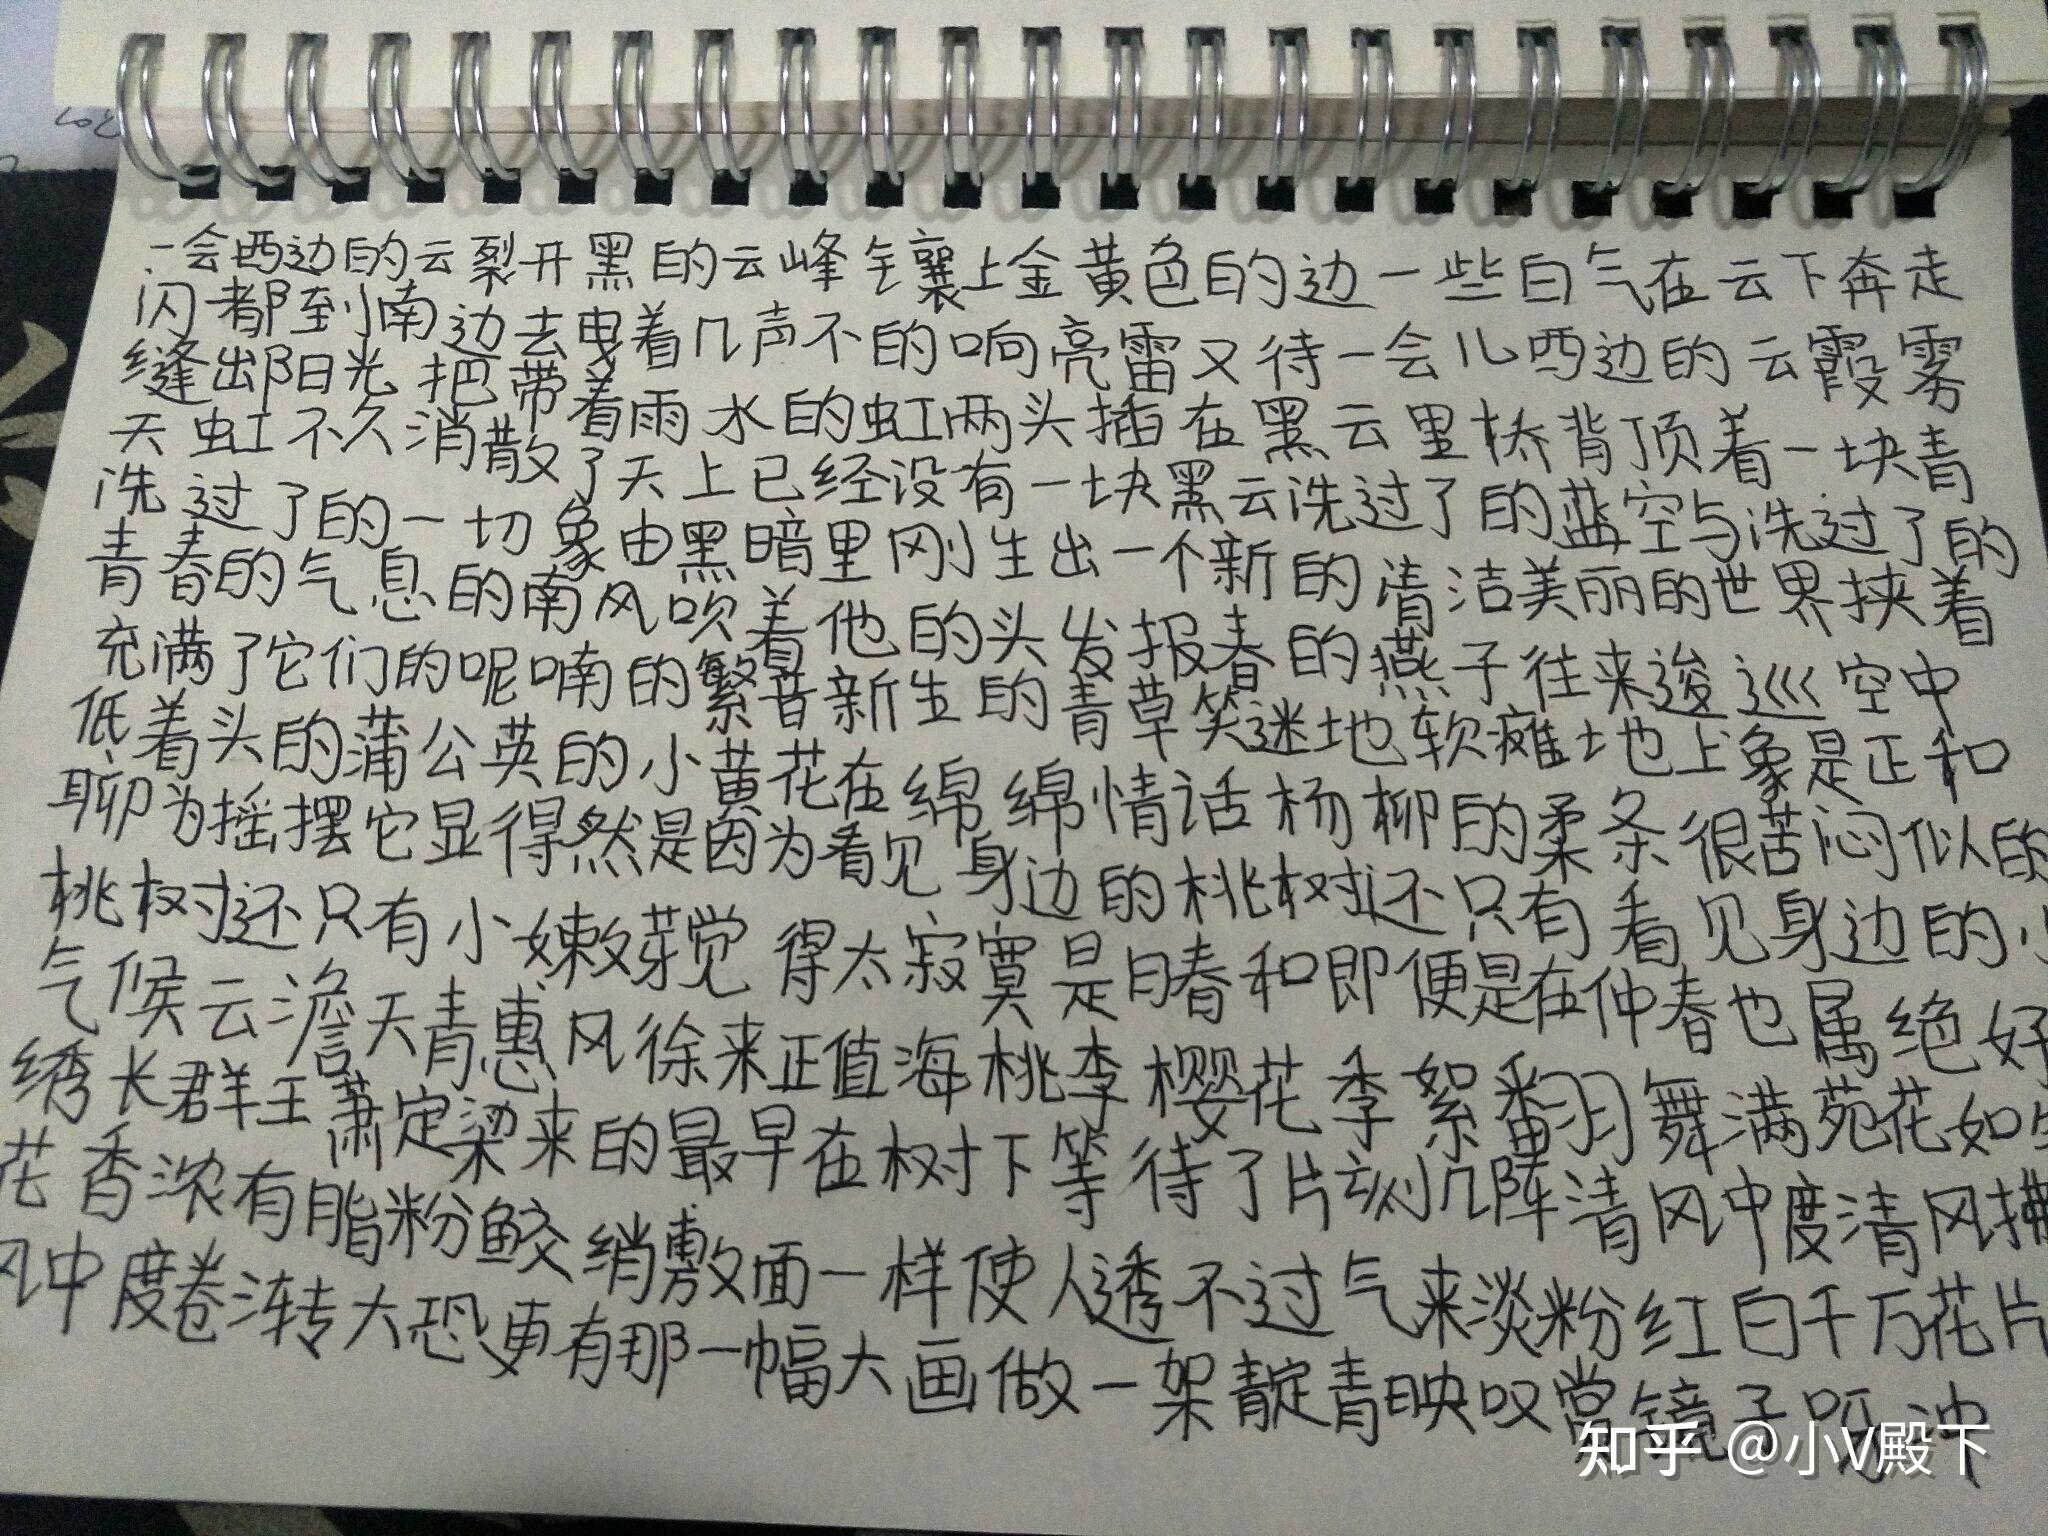 一会西边的云裂开黑的云峰镶上金黄色的边一些白气在云下奔走
闪都到南边去曳着几声不的响亮雷又待一会儿西边的云霞雾
缝出阳光把带着雨水的虹两头插在黑云里桥背顶着一块青
天虹不久消散了天上已经没有一块黑云洗过了的蓝空与洗过了的
洗过了的一切象由黑暗里刚生出一个新的清洁美丽的世界挟着
青春的气息的南风吹着他的头发报春的燕子往来逡巡空中
充满了它们的呢喃的繁音新生的青草笑迷地软瘫地上象是正和
低着头的蒲公英的小黄花在绵绵情话杨柳的柔条很苦闷似的
聊为摇摆它显得然是因为看见身边的桃树还只有看见身边的小
桃树还只有小嫩芽觉得太寂寞是日春和即便是在仲春也属绝好
气候云澹天青惠风徐来正值海桃李樱花季絮翻舞满苑花如
绣长群王萧定梁来的最早在树下等待了片刻几阵清风中度清风拂
花香浓有脂粉鲛绡敷面一样使人透不过气来淡粉红白千万花片
风中度卷涛转大恐更有那一幅大画做一架青靛青映叹当镜子呀冲
知乎 @小V殿下